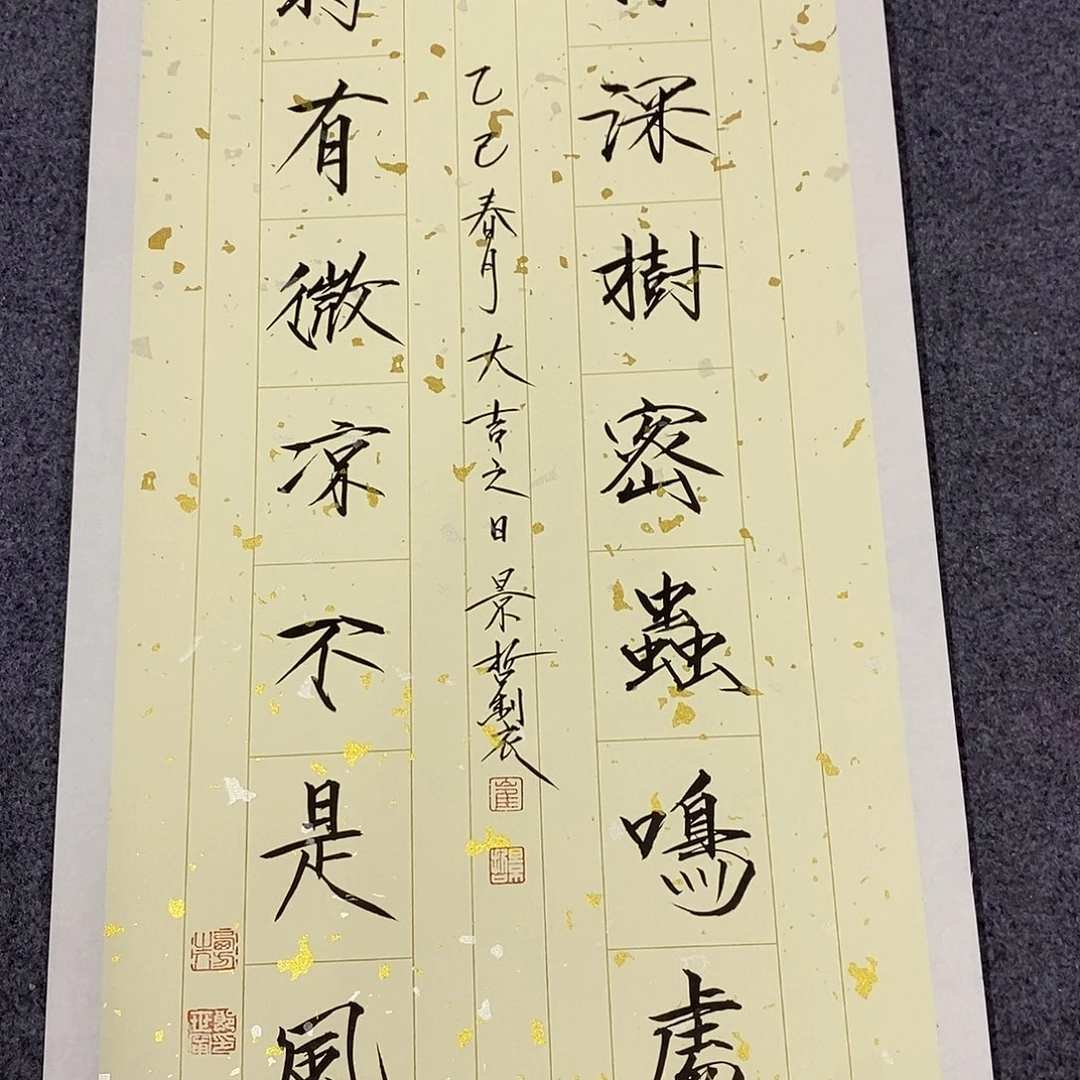 深樹密蟲鳴處
乙巳春月大吉之日景哲製
崔
景哲
有微涼不是風